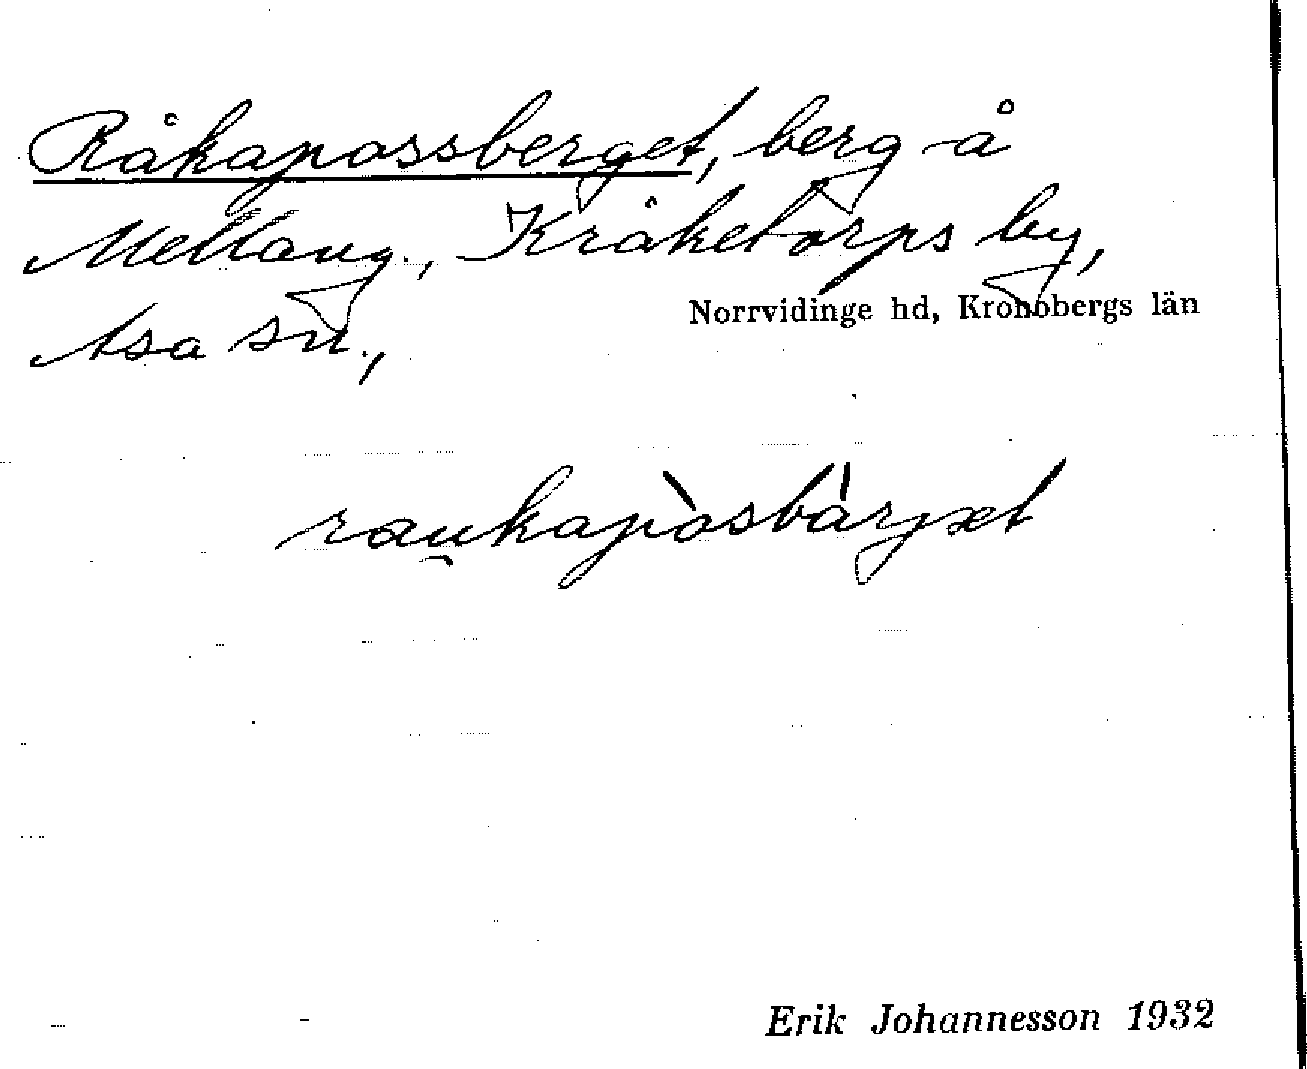 Råkapossberget, berg å
Mellang., Kråketorps by,
Norrvidinge hd, Kronobergs län
Asa sn.,
rau̯kapòsbàrjət
Erik Johannesson 1932